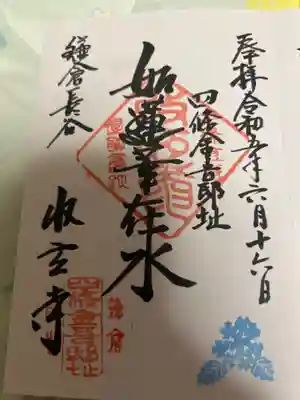 奉拝 令和五年六月十六日
四條金吾邸址
如蓮華在水
鎌倉長谷
収玄寺
鎌倉
四條金吾邸址